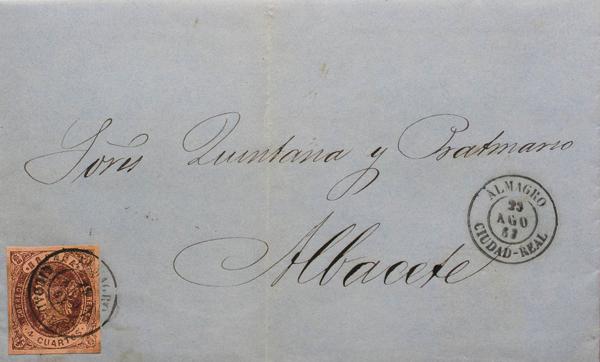 Sores Quintana y Pratmarso
Albacete
ALMAGRO
AGO
CIUDAD-REAL
4 CUARTOS